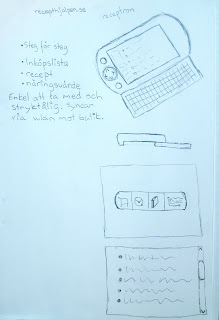 recepthjälpen.se
receptron
• Steg för steg
• Inköpslista
• recept
• näringsvärde
Enkel att ta med och
stryktålig. Syncar
via wlan mot butik.